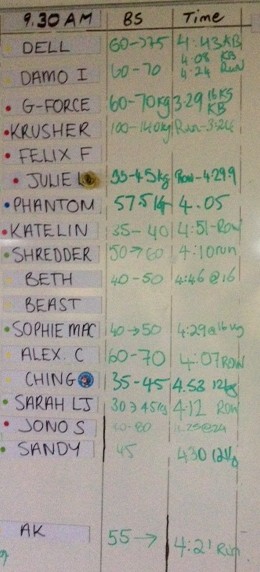 9.30 AM BS Time
DELL 60->75 4:43 KB
4:08 KB
DAMO I 60-70 4:24 Run
G-FORCE 60-70kg 3:29 16KG KB
KRUSHER 100-140kg Run-3:26
FELIX F
JULIE L 35-45kg Row-4299
PHANTOM 57.5k 4.05
KATELIN 35-40 4:51-Row
SHREDDER 50->60 4:10run
BETH 40-50 4:46@16
BEAST
SOPHIE MAC 40->50 4:29@16kg
ALEX. C 60-70 4:07ROW
CHING 35-45 4.53 12kg
SARAH LJ 30->45kg 4:12 Row
JONO S
SANDY 45 430
AK 55-> 4:21 Run